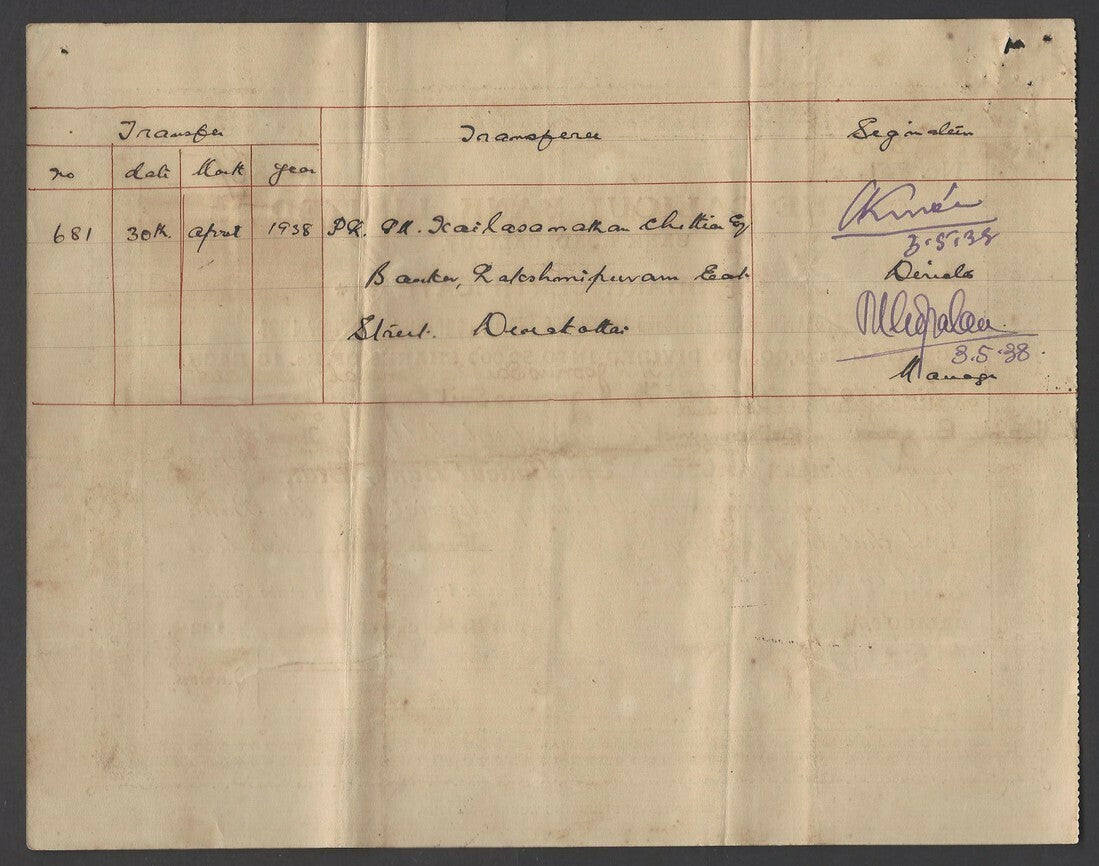 Transfer Transferee Signature
no date Month year
681 30th april 1938 PR. PR. Kailasanathan Chettiar Esq
Banker, Lakshmipuram East
Street. Devakottai
3.5.38
Director
3.5.38.
Manager